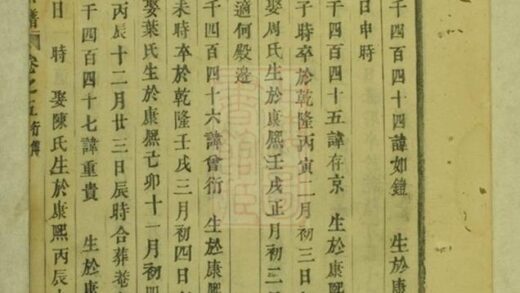 千四百四十四諱如鎧　生於康熙
日申時
千四百四十五諱存京　生於康熙
子時卒於乾隆丙寅二月初三日
娶周氏生於康熙壬戌正月初二
適何殿邉
千四百四十六諱曾衍　生於康熙
未時卒於乾隆壬戌三月初四日
娶葉氏生於康熙己卯十一月初四
丙辰十二月廿三日辰時合葬菴
千四百四十七諱重貴　生於康
日　時　娶陳氏生於康熙丙辰
譜　卷之五　行傳